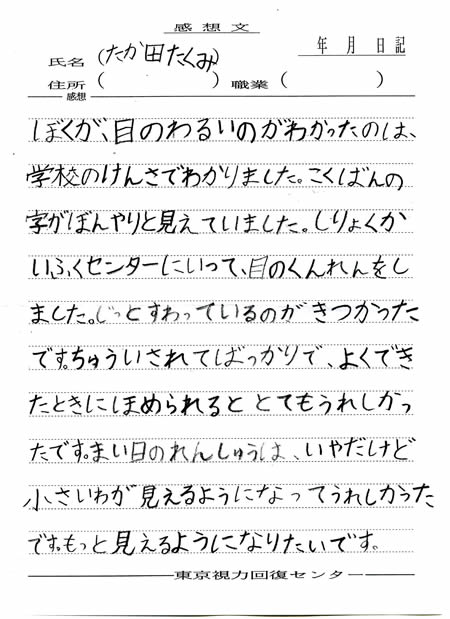 感想文
年 月 日記
氏名(たか田たくみ)
住所( ) 職業( )
感想
ぼくが、目のわるいのがわかったのは、
学校のけんさでわかりました。こくばんの
字がぼんやりと見えていました。しりょくか
いふくセンターにいって、目のくんれんをし
ました。じっとすわっているのがきつかった
です。ちゅういされてばっかりで、よくでき
たときにほめられるととてもうれしかっ
たです。まい日のれんしゅうは、いやだけど
小さいわが見えるようになってうれしかった
です。もっと見えるようになりたいです。
東京視力回復センター